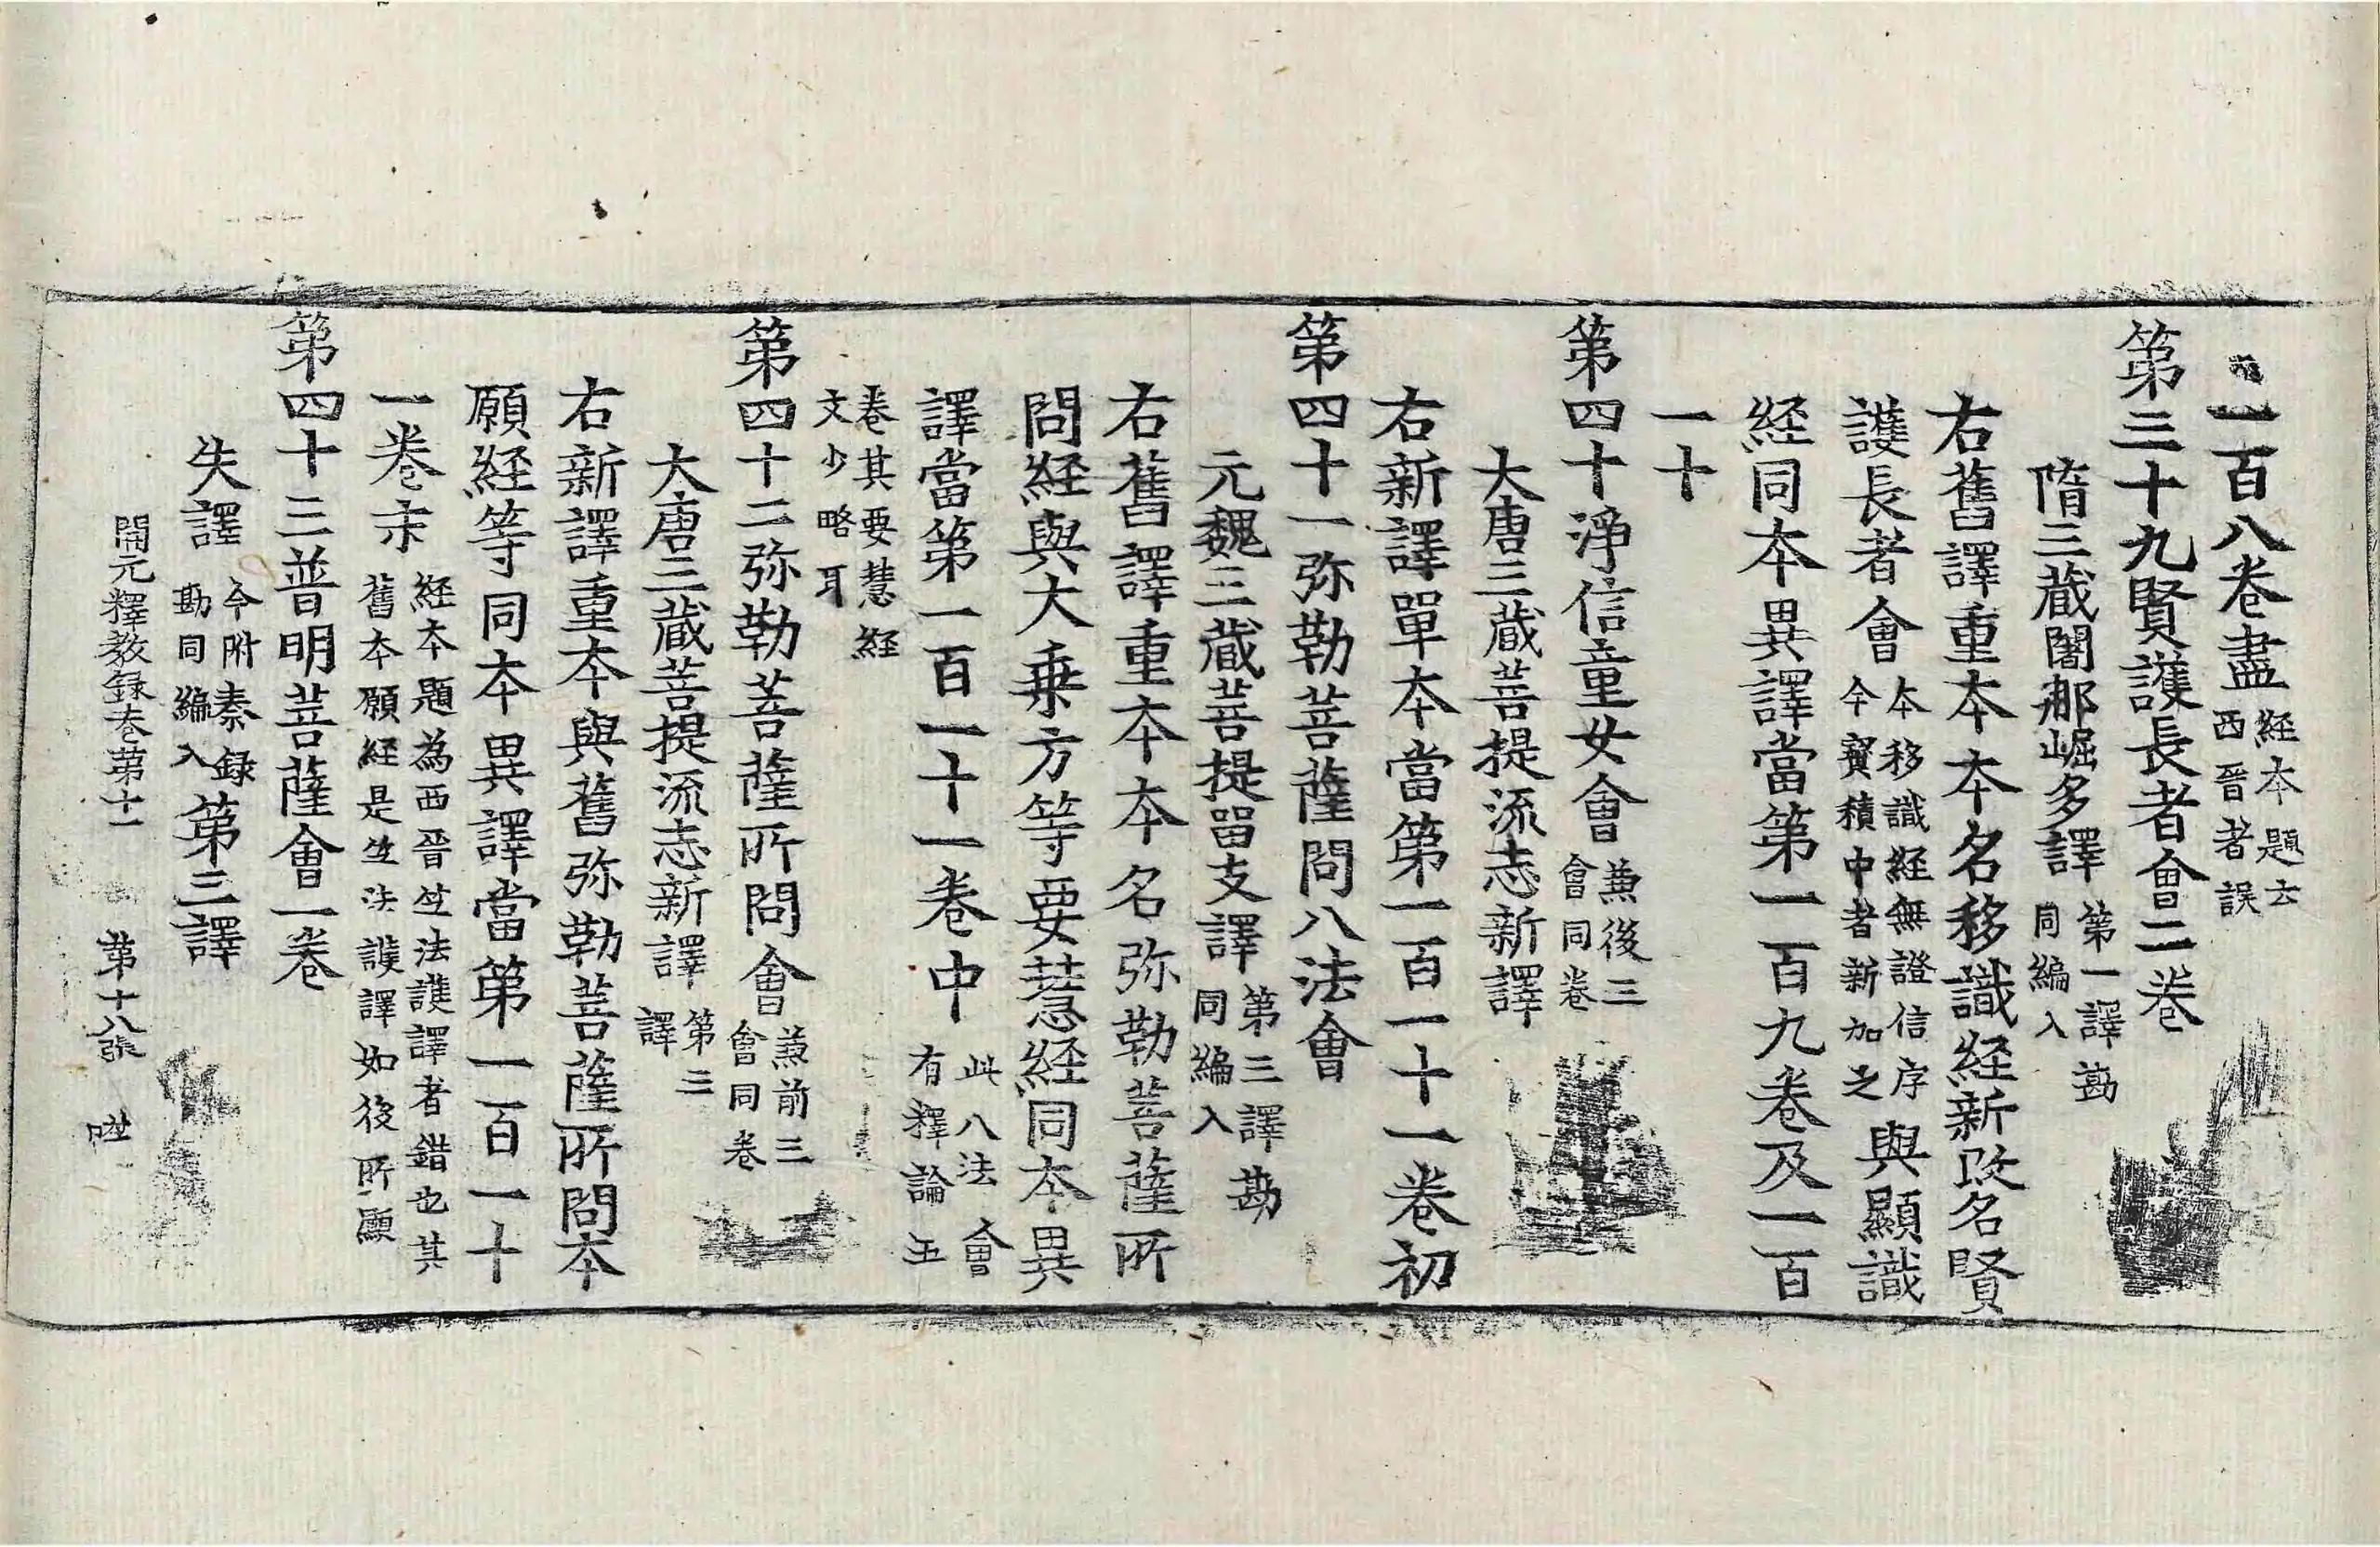 一百八卷盡 經本題云西晉者誤
第三十九賢護長者會二卷
隋三藏闍那崛多譯 第一譯勘同編入
右舊譯重本本名移識經新改名賢
護長者會 本移識經無證信序今寶積中者新加之 與顯識
經同本異譯當第一百九卷及一百
一十
第四十淨信童女會 兼後三會同卷
大唐三藏菩提流志新譯
右新譯單本當第一百一十一卷初
第四十一弥勒菩薩問八法會
元魏三藏菩提留支譯 第三譯勘同編入
右舊譯重本本名弥勒菩薩所
問經與大乘方等要慧經同本異
譯當第一百一十一卷中 此八法會有釋論五
卷其要慧經文少略耳
第四十二弥勒菩薩所問會 兼前三會同卷
大唐三藏菩提流志新譯 第三譯
右新譯重本與舊弥勒菩薩所問本
願經等同本異譯當第一百一十
一卷末 經本題為西晉竺法護譯者錯也其舊本願經是竺法護譯如後所顯
第四十三普明菩薩會一卷
失譯 今附秦録勘同編入 第三譯
開元釋教録卷第十一 第十八張